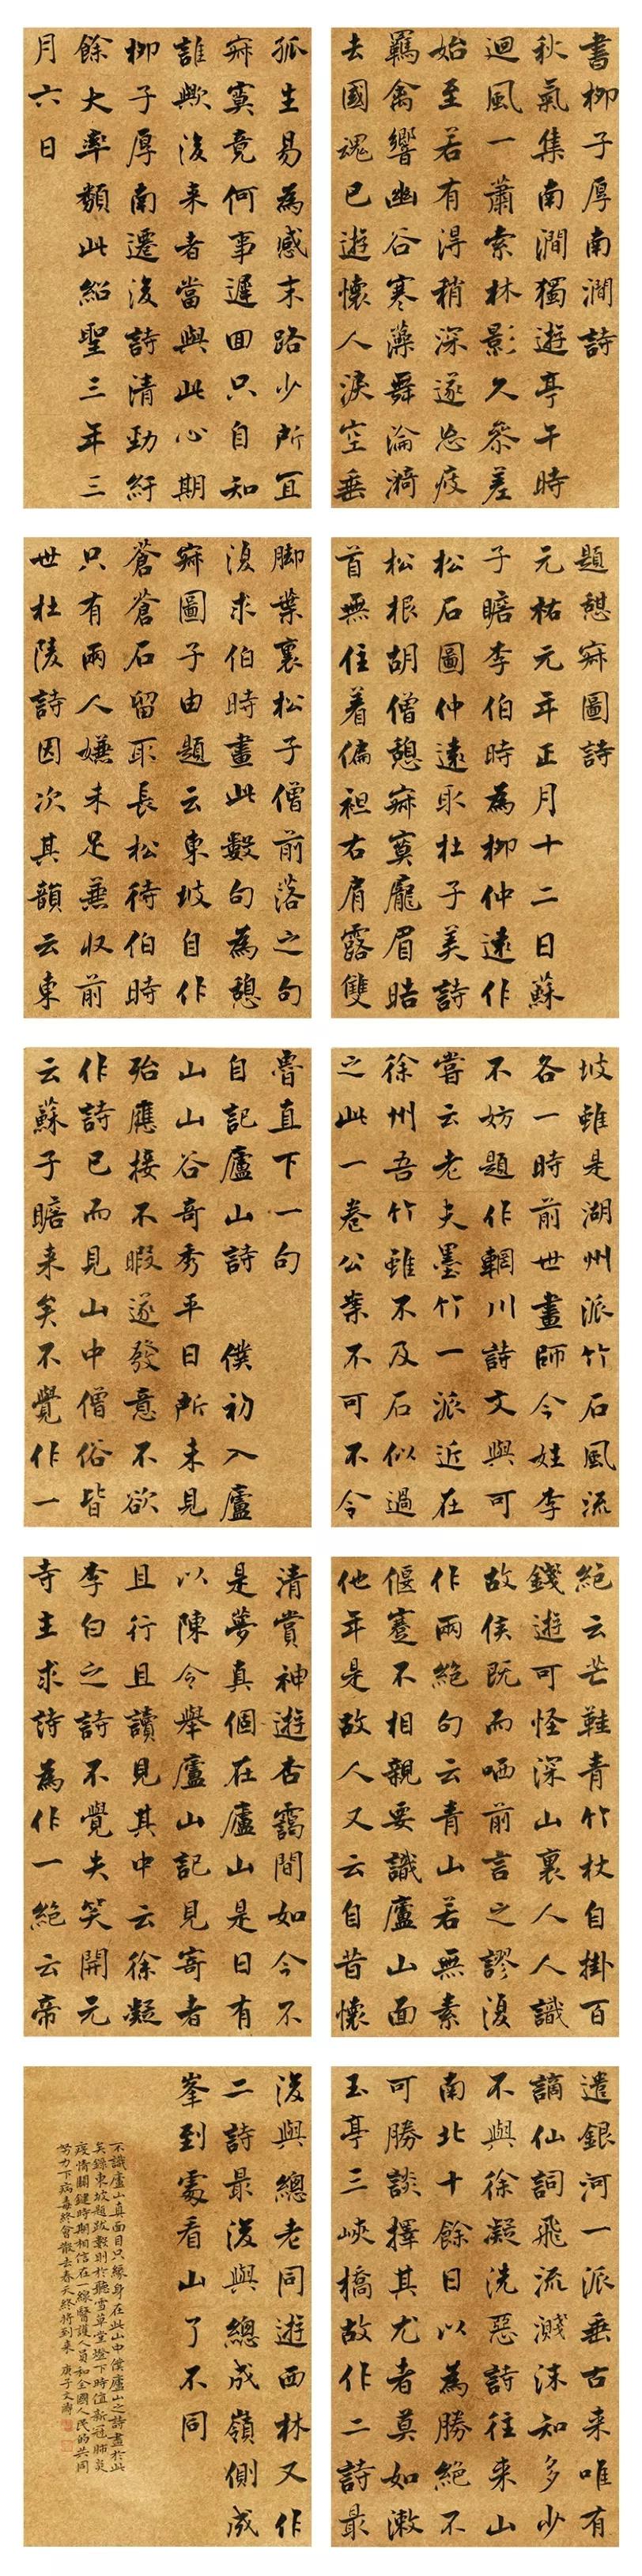 書柳子厚南澗詩
秋氣集南澗獨遊亭午時
迴風一蕭索林影久參差
始至若有得稍深遂忘疲
羈禽響幽谷寒藻舞淪漪
去國魂已遊懷人淚空垂
孤生易為感末路少所宜
寂寞竟何事遲回只自知
誰歟後来者當與此心期
柳子厚南遷後詩清勁紆
餘大率類此紹聖三年三
月六日
題憩寂圖詩
元祐元年正月十二日蘇
子瞻李伯時為柳仲遠作
松石圖仲遠取杜子美詩
松根胡僧憩寂寞龐眉皓
首無住著偏袒右肩露雙
脚葉裏松子僧前落之句
復求伯時畫此數句為憩
寂圖子由題云東坡自作
蒼蒼石留取長松待伯時
只有兩人嫌未足兼收前
世杜陵詩因次其韻云東
坡雖是湖州派竹石風流
各一時前世畫師今姓李
不妨題作輞川詩文與可
嘗云老夫墨竹一派近在
徐州吾竹雖不及石似過
之此一卷公案不可不令
魯直下一句
自記廬山詩 僕初入廬
山山谷奇秀平日所未見
殆應接不暇遂發意不欲
作詩已而見山中僧俗皆
云蘇子瞻来矣不覺作一
絕云芒鞋青竹杖自掛百
錢遊可怪深山裏人人識
故侯既而哂前言之謬復
作兩絕句云青山若無素
偃蹇不相親要識廬山面
他年是故人又云自昔懷
清賞神遊杳靄間如今不
是夢真個在廬山是日有
以陳令舉廬山記見寄者
且行且讀見其中云徐凝
李白之詩不覺失笑開元
寺主求詩為作一絕云帝
遣銀河一派垂古来唯有
謫仙詞飛流濺沫知多少
不與徐凝洗惡詩往来山
南北十餘日以為勝絕不
可勝談擇其尤者莫如漱
玉亭三峽橋故作二詩最
後與總老同遊西林又作
二詩最後與總成嶺側成
峯到處看山了不同
不識廬山真面目只緣身在此山中 僕廬山之詩盡於此
矣錄東坡題跋數則於聽雪草堂燈下時值新冠肺炎
疫情關鍵時期相信在一線醫護人員和全國人民的共同
努力下病毒終會散去春天終將到来 庚子文